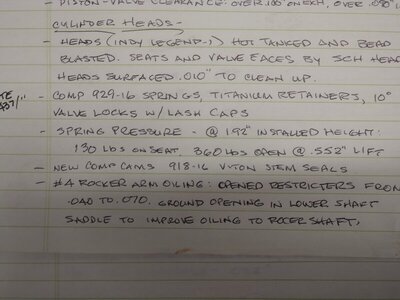 - PISTON-VALVE CLEARANCE: OVER .100" ON EXH, OVER .090"
CYLINDER HEADS -
- HEADS (INDY LEGEND-1) HOT TANKED AND BEAD
BLASTED. SEATS AND VALVE FACES BY SCH HEAD
HEADS SURFACED .010" TO CLEAN UP.
- COMP 929-16 SPRINGS, TITANIUM RETAINERS, 10°
VALVE LOCKS W/ LASH CAPS
- SPRING PRESSURE - @ 1.92" INSTALLED HEIGHT:
130 LBS ON SEAT. 360 LBS OPEN @ .552" LIFT
- NEW COMP CAMS 918-16 VITON STEM SEALS
- #4 ROCKER ARM OILING: OPENED RESTRICTERS FROM
.040 TO .070. GROUND OPENING IN LOWER SHAFT
SADDLE TO IMPROVE OILING TO ROCER SHAFT.